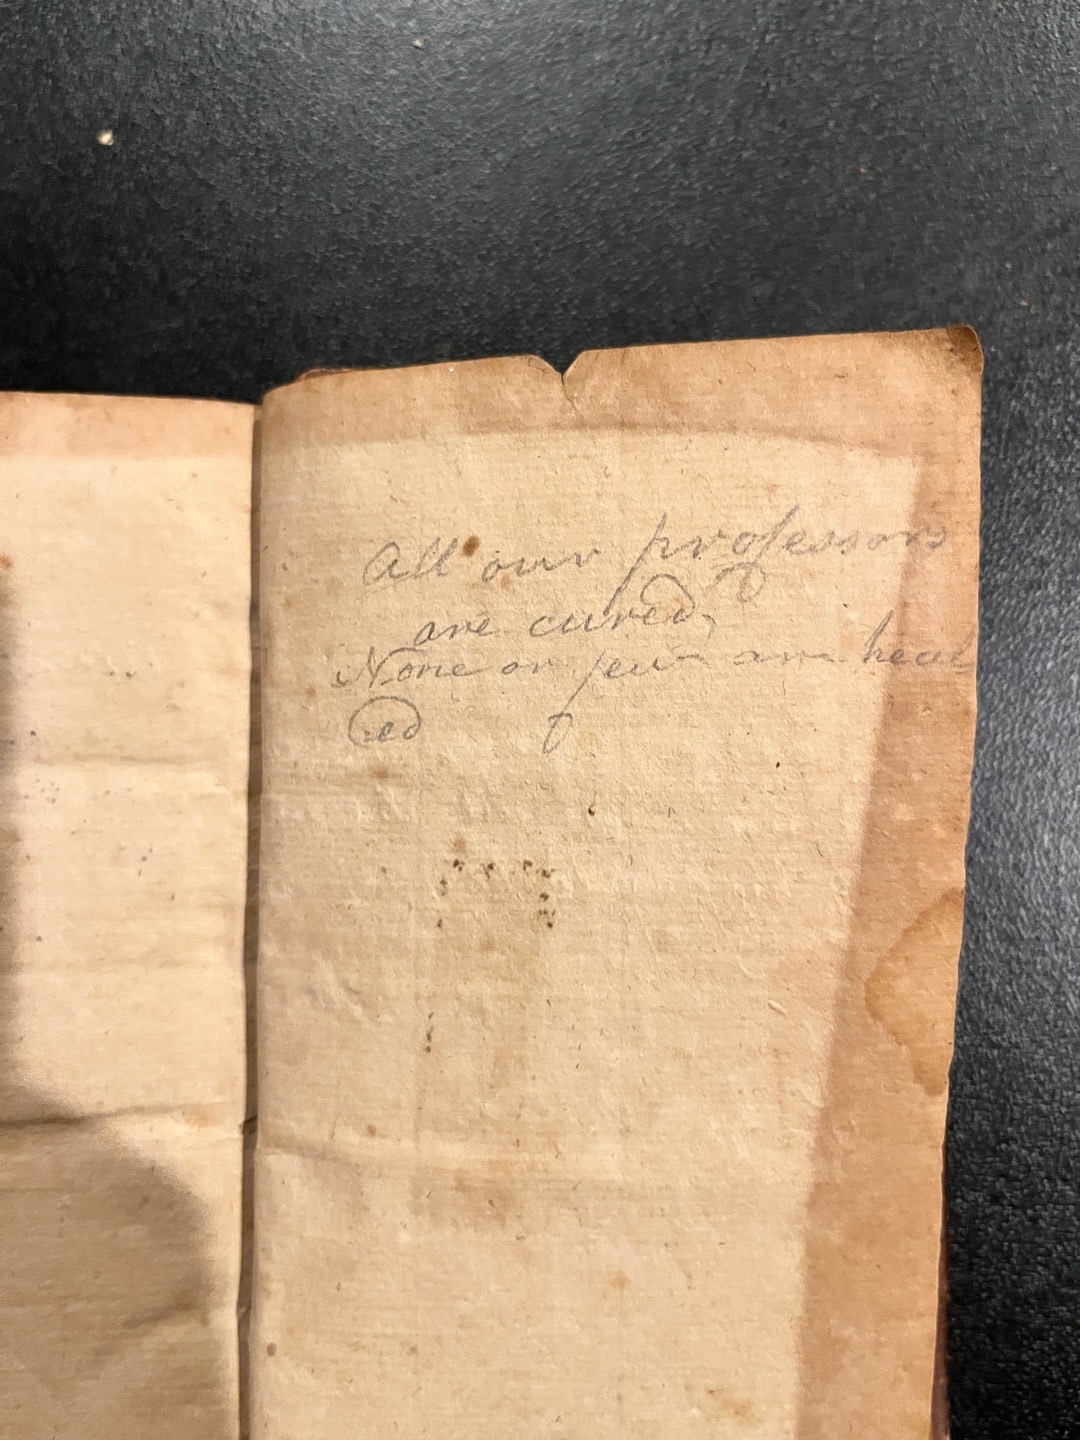 All our professors
are cured,
None or few are heal
ed